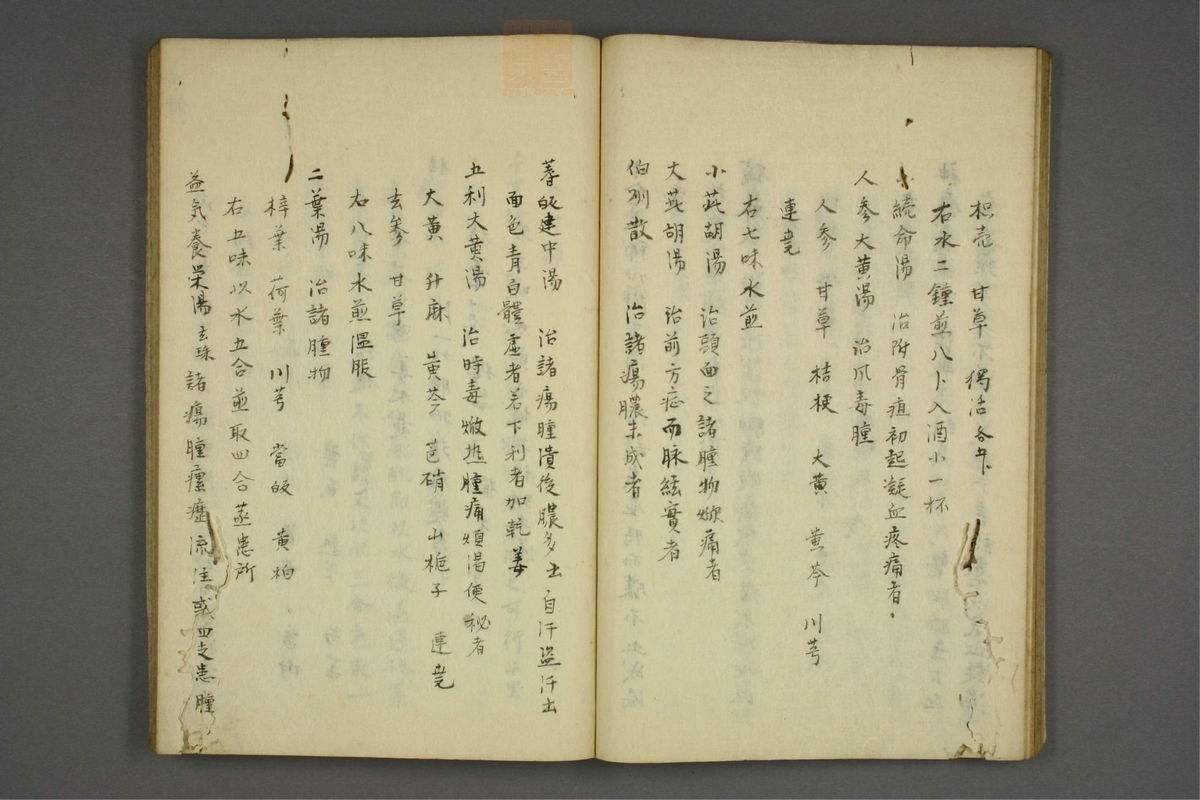 枳壳 甘草 獨活各五卜
右水二鍾煎八卜入酒小一杯
小続命湯 治附骨疽初起凝血疼痛者
人参大黄湯 治風毒腫
人参 甘草 桔梗 大黄 黄芩 川芎
連堯
右七味水煎
小茈胡湯 治頭面之諸腫物焮痛者
大茈胡湯 治前方症而脉絃實者
伯州散 治諸瘍膿未成者
蓍皈建中湯 治諸瘍腫潰後膿多出自汗盗汗出
面色青白體虚者若下利者加乾姜
五利大黄湯 治時毒焮热腫痛煩渴便秘者
大黄 升麻 黄芩 芒硝 山梔子 連堯
玄参 甘草
右八味水煎温服
二葉湯 治諸腫物
梓葉 荷葉 川芎 當皈 黄柏
右五味以水五合煎取四合蒸患所
益気養栄湯 諸瘍腫瘰癧流注或四支患腫